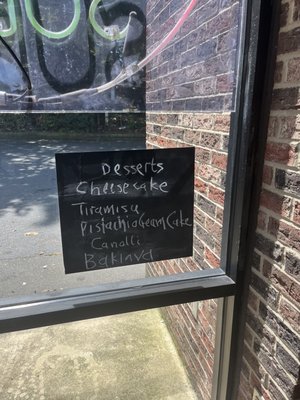 Desserts
Cheesecake
Tiramisu
Pistachio Cream Cake
Canolli
Baklava